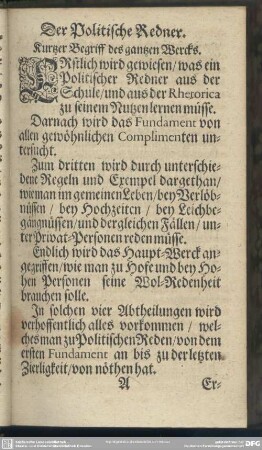 Der Politische Redner.
Kurtzer Begriff des gantzen Wercks.
ERstlich wird gewiesen/ was ein
Politischer Redner aus der
Schule/ und aus der Rhetorica
zu seinem Nutzen lernen müsse.
Darnach wird das Fundament von
allen gewöhnlichen Complimenten un-
tersucht.
Zum dritten wird durch unterschie-
dene Regeln und Exempel dargethan/
wie man im gemeinen Leben/ bey Verlöb-
nüssen/ bey Hochzeiten/ bey Leichbe-
gängnüssen/ und dergleichen Fällen/ un-
ter Privat-Personen reden müsse.
Endlich wird das Haupt-Werck an-
gegriffen/ wie man zu Hofe und bey Ho-
hen Personen seine Wol-Redenheit
brauchen solle.
In solchen vier Abtheilungen wird
verhoffentlich alles vorkommen/ wel-
ches man zu Politischen Reden/ von dem
ersten Fundament an bis zu der letzten
Zierligkeit/ von nöthen hat.
A Er-